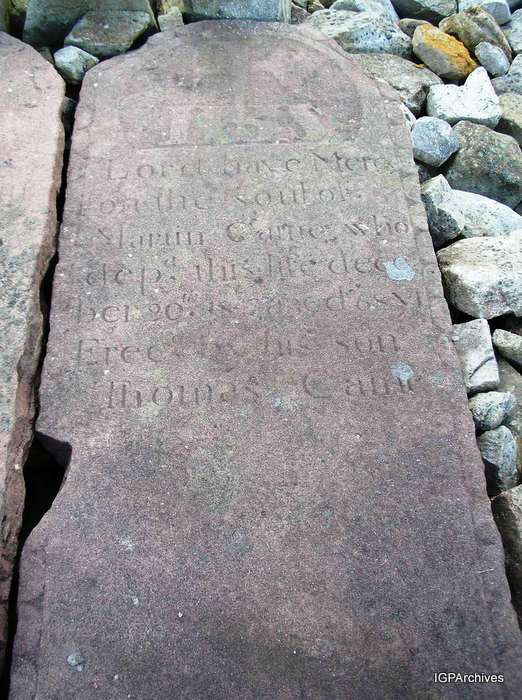 IHS
Lord have Mercy
on the soul of
Martin Carne who
dep.t this life decem
ber 20th aged 68 y.rs
Erec.d by his son
Thomas Carne
IGPArchives